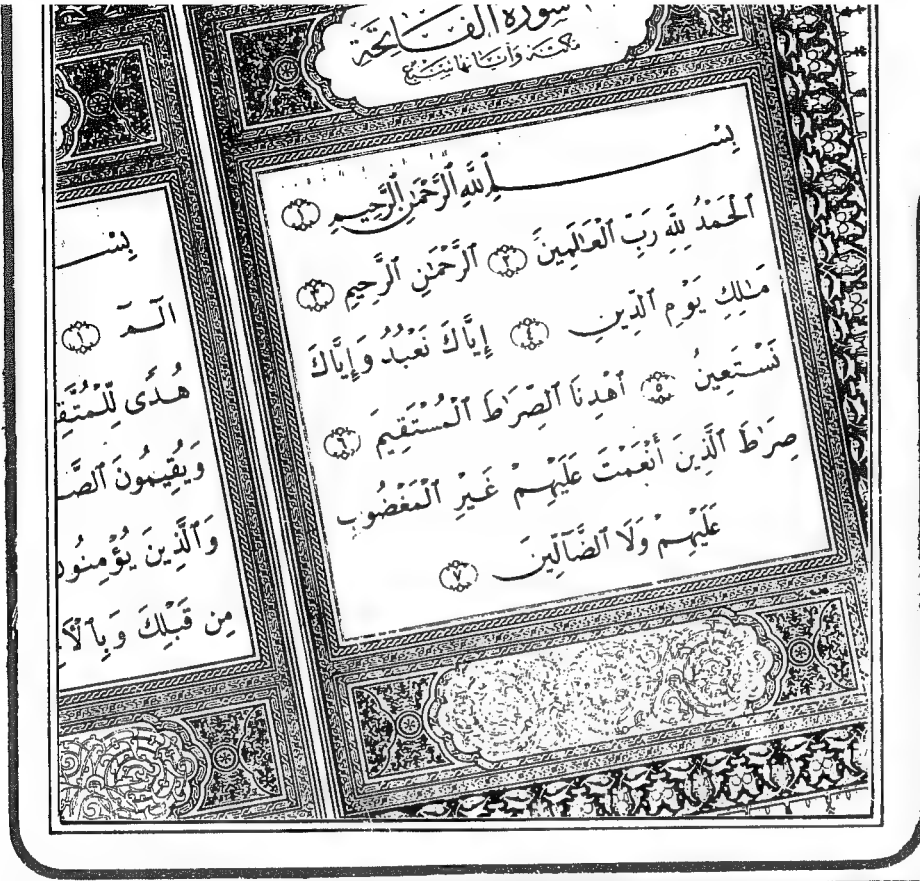 سورة الفاتحة
مكية وآياتها سبع
بِسْمِ ٱللَّهِ ٱلرَّحْمَٰنِ ٱلرَّحِيمِ ١
ٱلْحَمْدُ لِلَّهِ رَبِّ ٱلْعَٰلَمِينَ ٢ ٱلرَّحْمَٰنِ ٱلرَّحِيمِ ٣
مَٰلِكِ يَوْمِ ٱلدِّينِ ٤ إِيَّاكَ نَعْبُدُ وَإِيَّاكَ
نَسْتَعِينُ ٥ ٱهْدِنَا ٱلصِّرَٰطَ ٱلْمُسْتَقِيمَ ٦
صِرَٰطَ ٱلَّذِينَ أَنْعَمْتَ عَلَيْهِمْ غَيْرِ ٱلْمَغْضُوبِ
عَلَيْهِمْ وَلَا ٱلضَّآلِّينَ ٧
بِسْ
الٓمٓ ١
هُدًى لِّلْمُتَّقِ
وَيُقِيمُونَ ٱلصَّ
وَٱلَّذِينَ يُؤْمِنُونَ
مِن قَبْلِكَ وَبِٱلْأَ